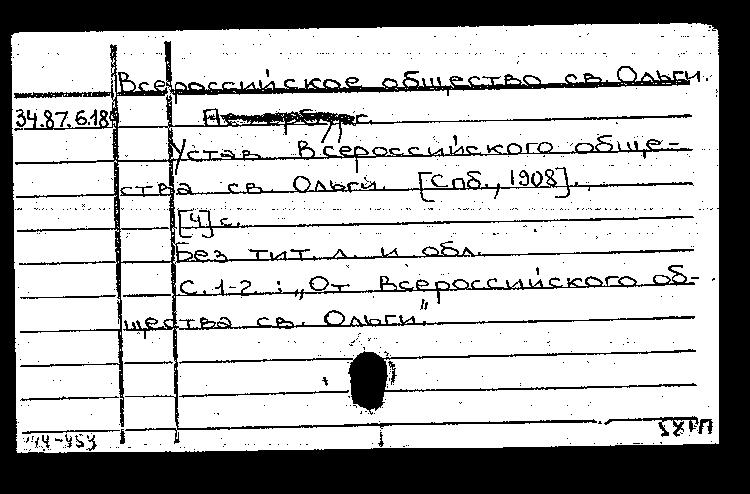 Всероссийское общество св. Ольги.
34.87.6.189
Устав Всероссийского обще-
ства св. Ольги. [Спб., 1908].
[4] с.
Без тит. л. и обл.
С. 1-2 : „От Всероссийского об-
щества св. Ольги."